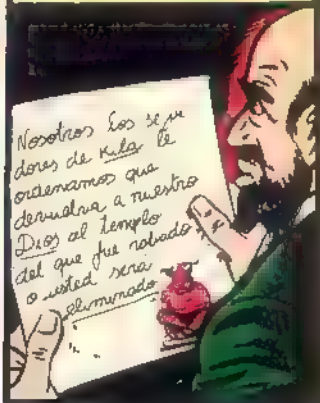 Nosotros los segui
dores de Kila le
ordenamos que
devuelva a nuestro
Dios al templo
del que fue robado
o usted será
eliminado